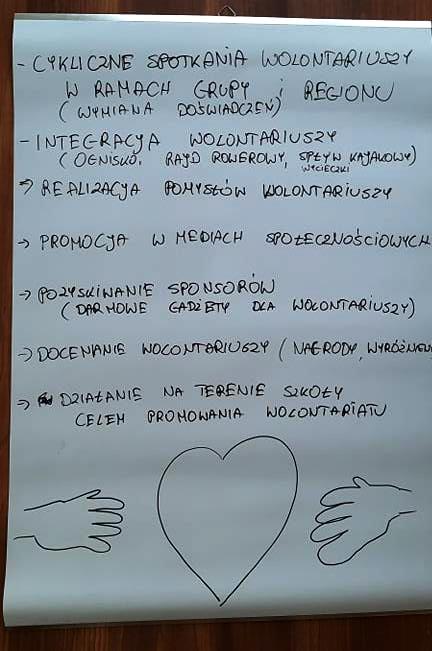 - CYKLICZNE SPOTKANIA WOLONTARIUSZY
W RAMACH GRUPY i REGIONU
( WYMIANA DOŚWIADCZEŃ)
- INTEGRACJA WOLONTARIUSZY
( OGNISKO, RAJD ROWEROWY, SPŁYW KAJAKOWY)
WYCIECZKI
→ REALIZACJA POMYSŁÓW WOLONTARIUSZY
→ PROMOCJA W MEDIACH SPOŁECZNOŚCIOWYCH
→ POZYSKIWANIE SPONSORÓW
( DARMOWE GADŻETY DLA WOLONTARIUSZY)
→ DOCENANIE WOLONTARIUSZY ( NAGRODY, WYRÓŻNIEN
→ DZIAŁANIE NA TERENIE SZKOŁY
CELEM PROMOWANIA WOLONTARIATU